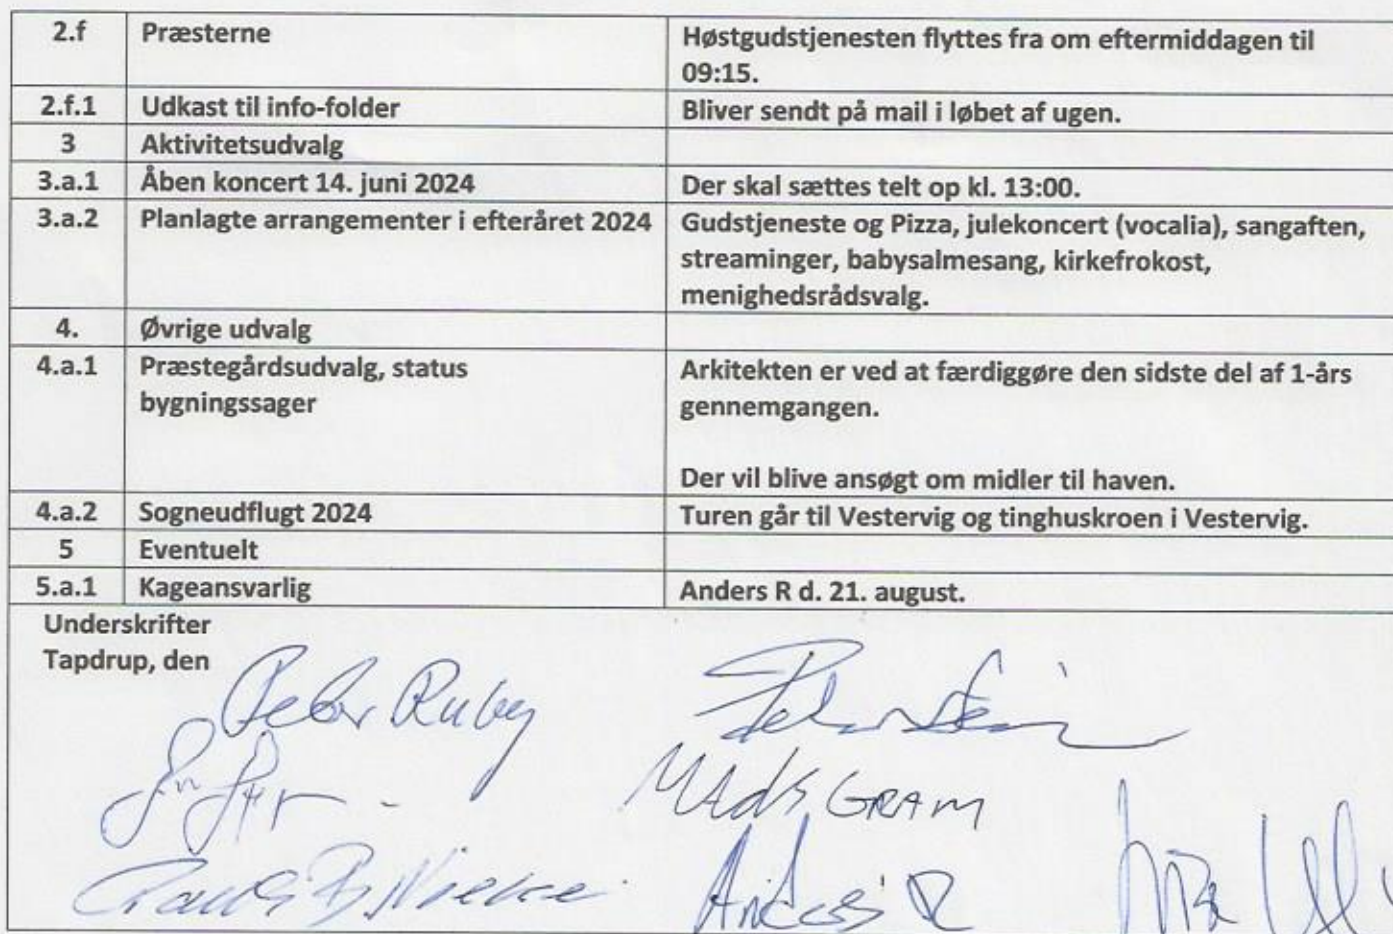 2.f Præsterne Høstgudstjenesten flyttes fra om eftermiddagen til
09:15.
2.f.1 Udkast til info-folder Bliver sendt på mail i løbet af ugen.
3 Aktivitetsudvalg
3.a.1 Åben koncert 14. juni 2024 Der skal sættes telt op kl. 13:00.
3.a.2 Planlagte arrangementer i efteråret 2024 Gudstjeneste og Pizza, julekoncert (vocalia), sangaften,
streaminger, babysalmesang, kirkefrokost,
menighedsrådsvalg.
4. Øvrige udvalg
4.a.1 Præstegårdsudvalg, status Arkitekten er ved at færdiggøre den sidste del af 1-års
bygningssager gennemgangen.
Der vil blive ansøgt om midler til haven.
4.a.2 Sogneudflugt 2024 Turen går til Vestervig og tinghuskroen i Vestervig.
5 Eventuelt
5.a.1 Kageansvarlig Anders R d. 21. august.
Underskrifter
Tapdrup, den
Peter Ruby
Mads GRAM
Anders R